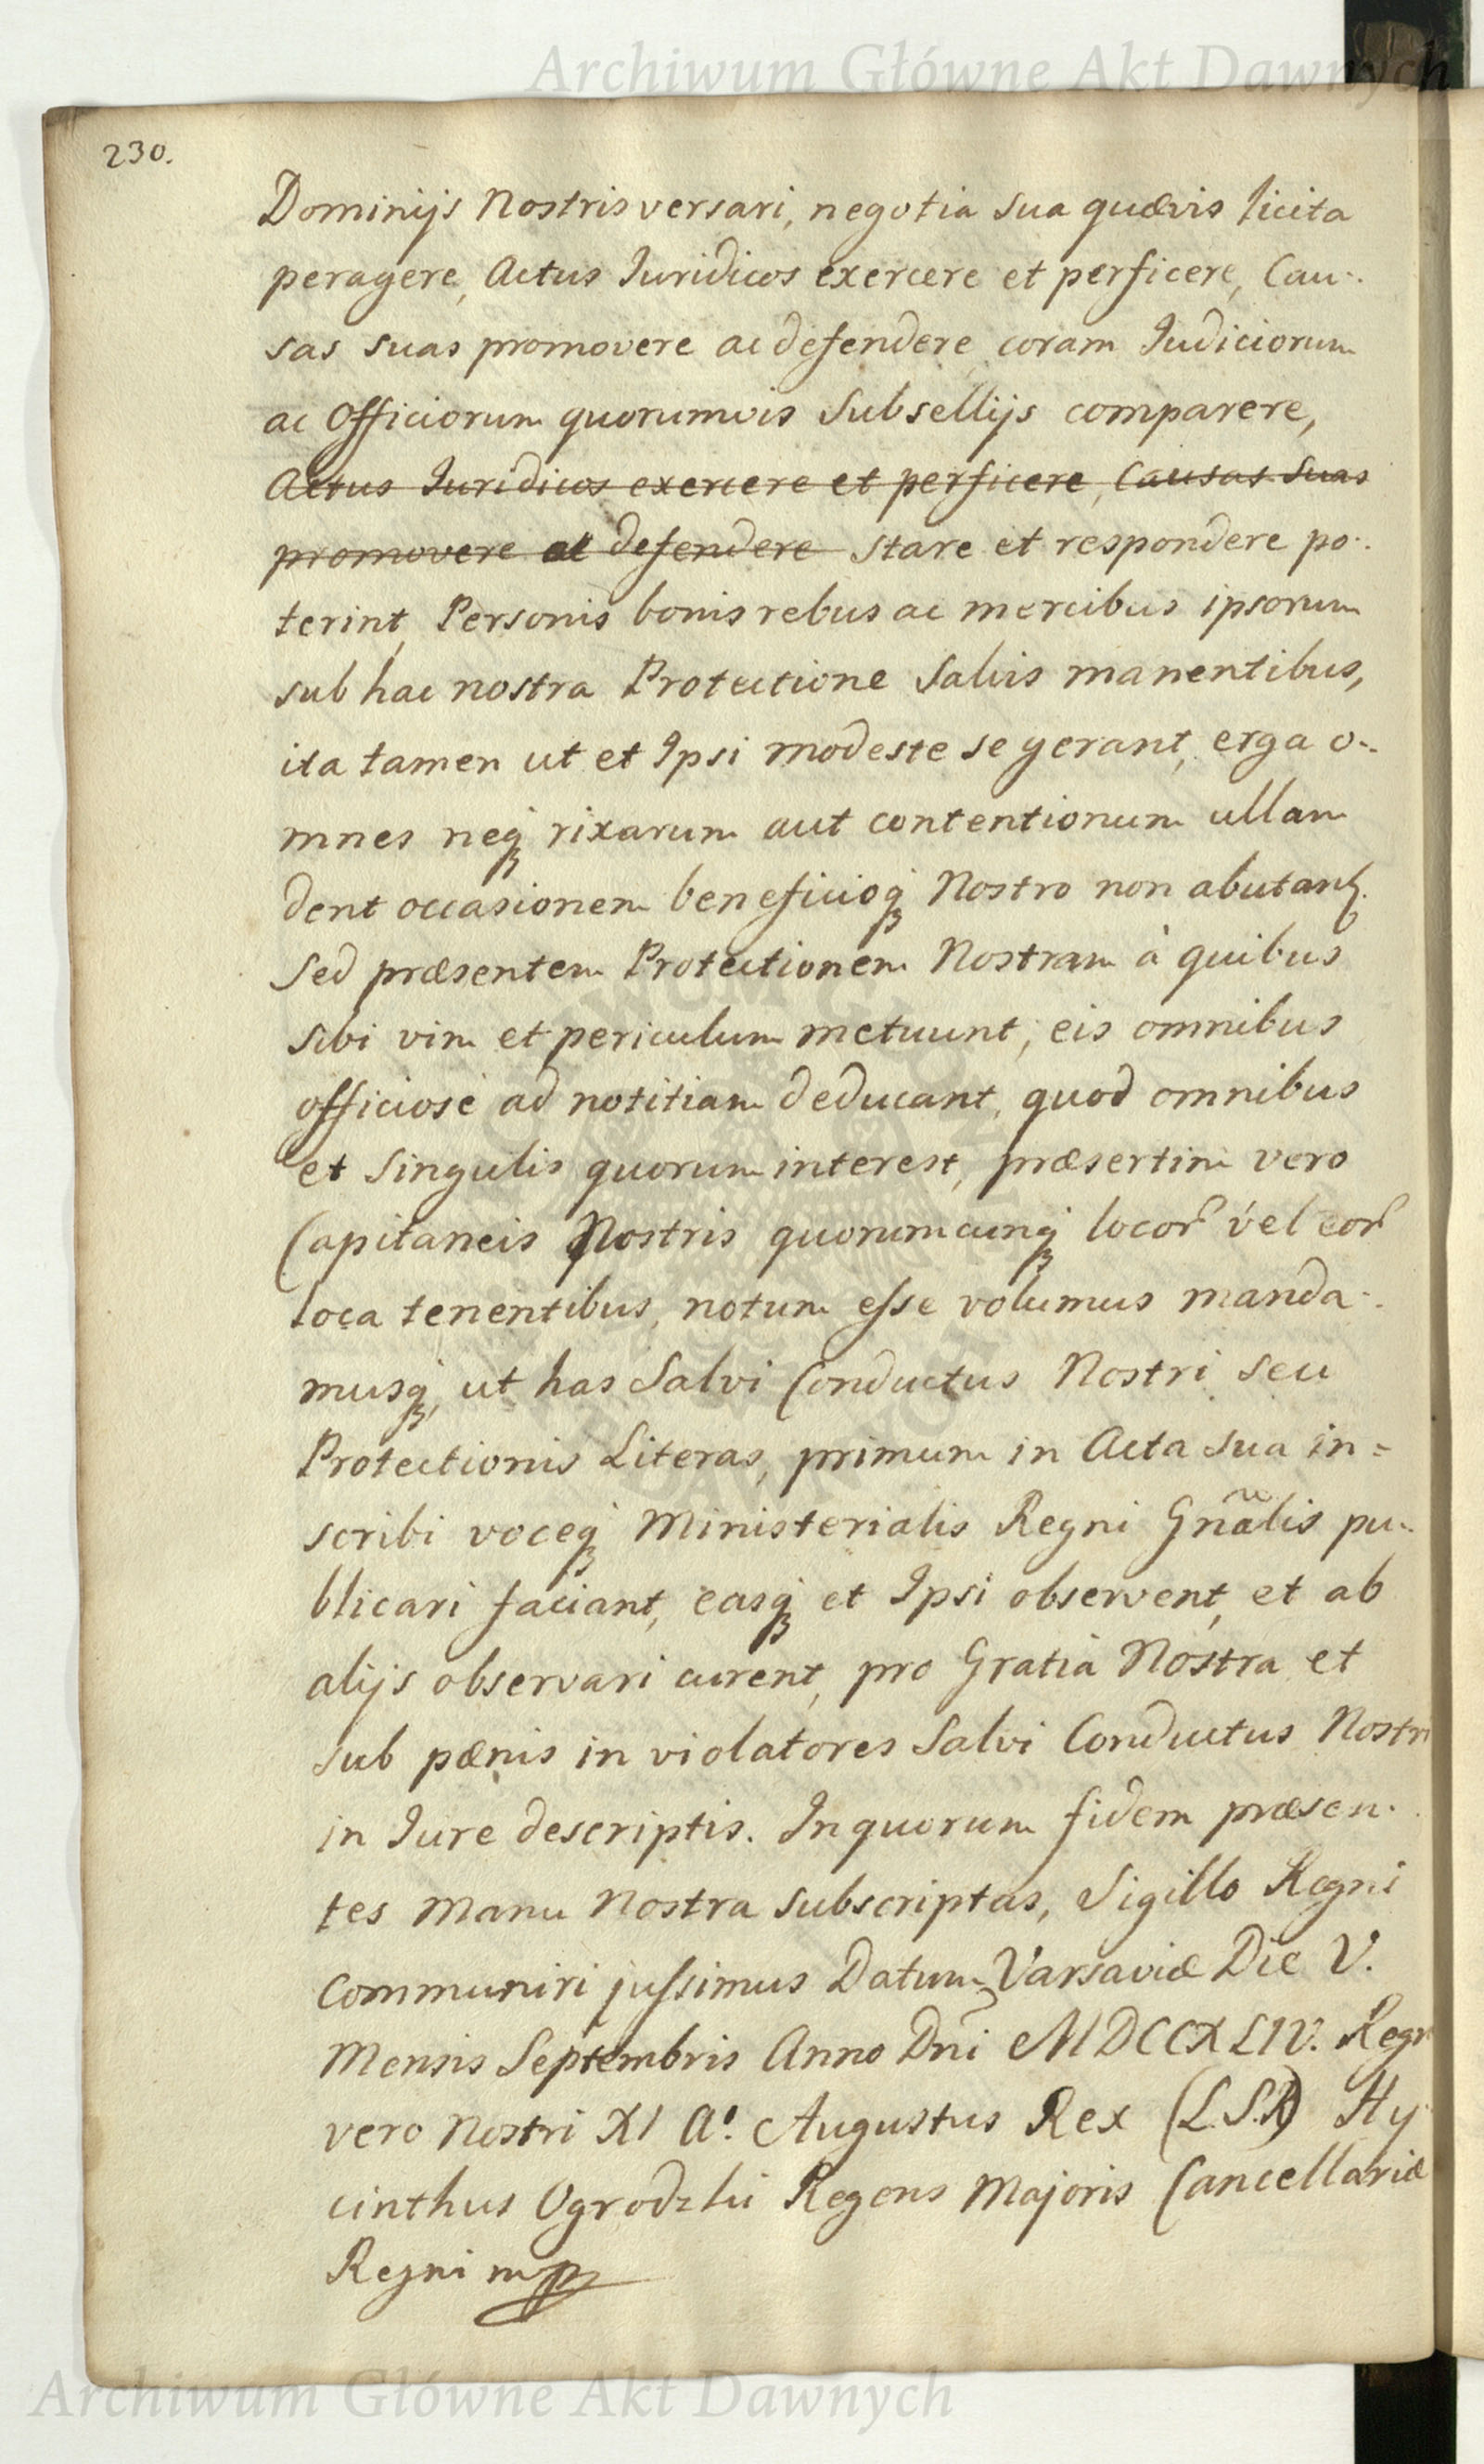 Archiwum Główne Akt Dawnych
230.
Dominijs Nostris versari, negotia sua quævis licita
peragere, Actus Iuridicos exercere et perficere, Cau-
sas suas promovere ac defendere, coram Iudiciorum
ac Officiorum quorumvis Subsellijs comparere,
Actus Iuridicos exercere et perficere, Causas Suas
promovere ac defendere stare et respondere po-
terint, Personis bonis rebus ac mercibus ipsorum
sub hac nostra Protectione Salvis manentibus,
ita tamen ut et Ipsi modeste se gerant, erga o-
mnes neqꝫ rixarum aut contentionum ullam
dent occasionem beneficioqꝫ Nostro non abutant.
Sed præsentem Protectionem Nostram à quibus
sibi vim et periculum metuunt, eis omnibus
officiosè ad notitiam deducant, quod omnibus
et Singulis quorum interest, præsertim vero
Capitaneis Nostris quorumcunqꝫ locor vel eor
loca tenentibus, notum esse volumus manda-
musqꝫ, ut has Salvi Conductus Nostri seu
Protectionis Literas, primum in Acta sua in=
scribi voceqꝫ Ministerialis Regni Gnãlis pu-
blicari faciant, easqꝫ et Ipsi observent, et ab
alijs observari curent, pro Gratia Nostra et
sub pænis in violatores Salvi Conductus Nostri
in Iure descriptis. In quorum fidem præsen-
tes Manu Nostra subscriptas, Sigillo Regni
communiri jussimus Datum Varsaviæ Die V.
Mensis Septembris Anno Dni MDCCXLIV. Regni
vero Nostri XI A.º Augustus Rex (L.S.R) Hy-
cinthus Ogrodzki Regens Majoris Cancellariæ
Regni mp
Archiwum Główne Akt Dawnych